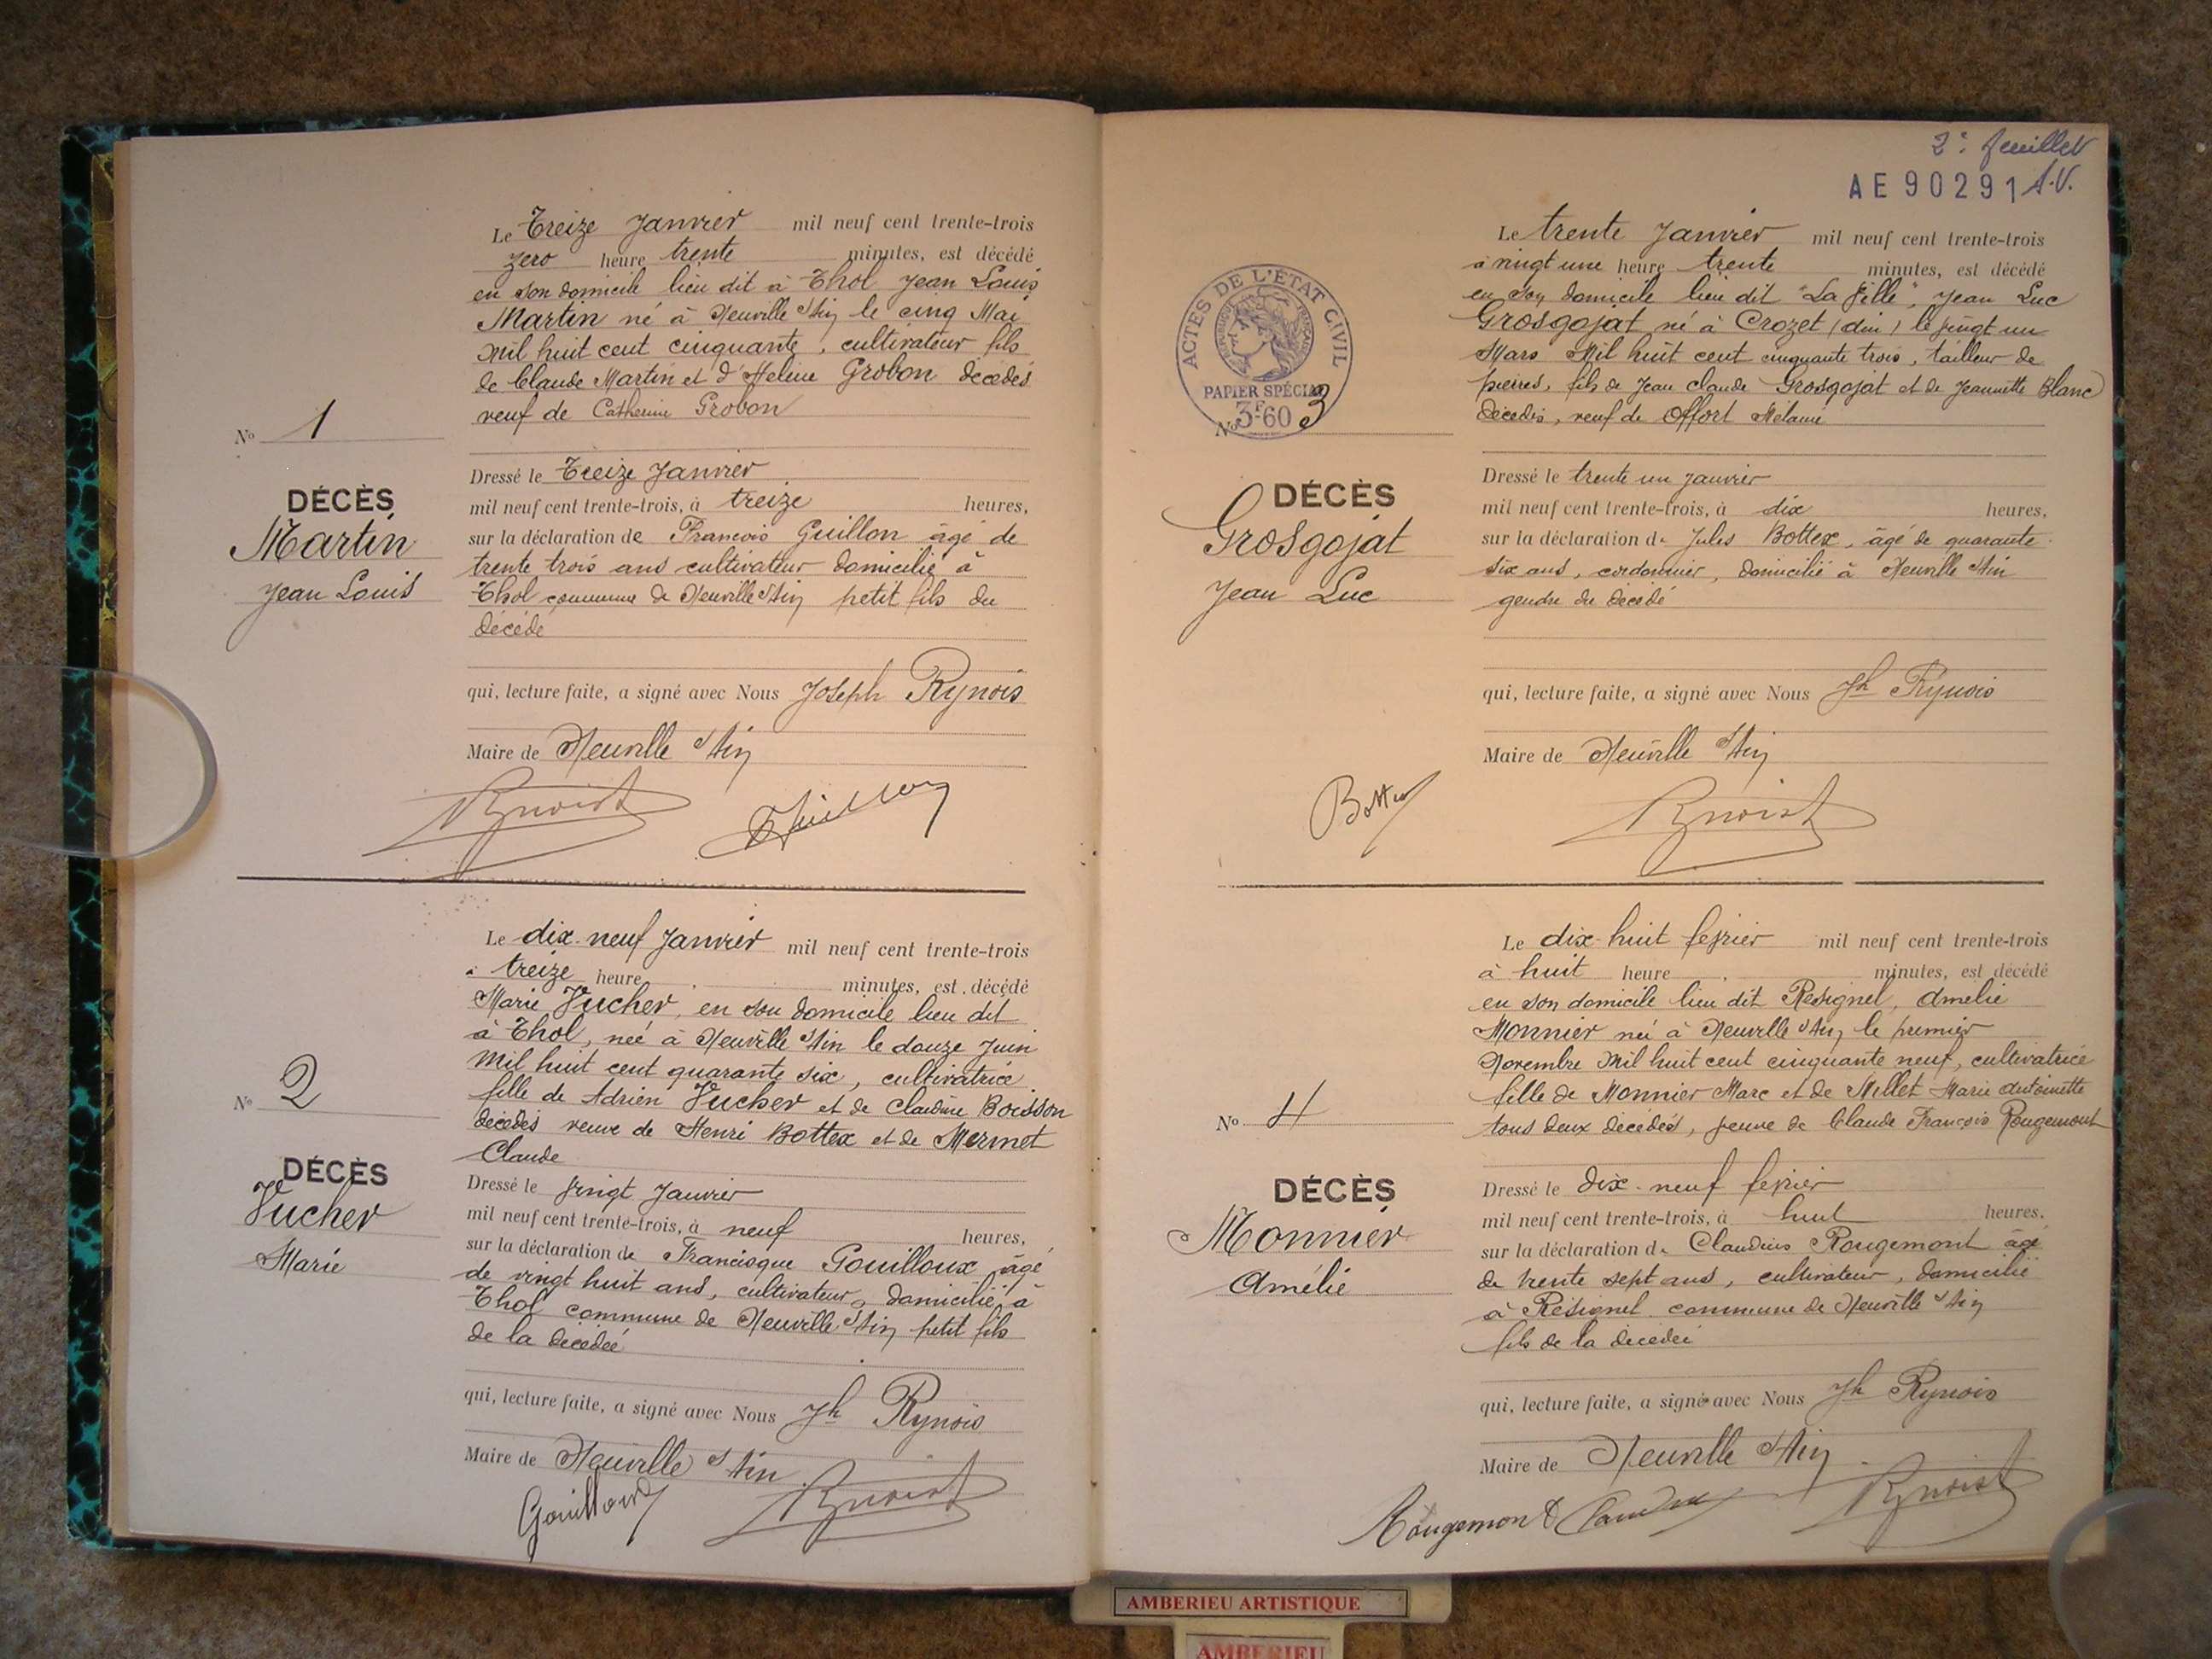 Le Treize Janvier mil neuf cent trente-trois
zero heure trente minutes, est décédé
en son domicile lieu dit à Thol Jean Louis
Martin né à Neuville s/Ain le cinq Mai
Mil huit cent cinquante, cultivateur fils
de Claude Martin et d'Helene Grobon décédés
veuf de Catherine Grobon
No 1
DÉCÈS
Martin
Jean Louis
Dressé le Treize Janvier
mil neuf cent trente-trois, à treize heures,
sur la déclaration de François Guillon âgé de
trente trois ans cultivateur domicilié à
Thol commune de Neuville s/Ain petit fils du
décédé
qui, lecture faite, a signé avec Nous Joseph Rynois
Maire de Neuville s/Ain
Le dix-neuf Janvier mil neuf cent trente-trois
à treize heure minutes, est décédé
Marie Vucher, en son domicile lieu dit
à Thol, née à Neuville s/Ain le douze Juin
Mil huit cent quarante six, cultivatrice
fille de Adrien Vucher et de Claudine Boisson
décédés veuve de Henri Bottex et de Mermet
Claude
No 2
DÉCÈS
Vucher
Marie
Dressé le vingt Janvier
mil neuf cent trente-trois, à neuf heures,
sur la déclaration de Francisque Gouilloux âgé
de vingt huit ans, cultivateur, domicilié à
Thol commune de Neuville s/Ain petit fils
de la décédée
qui, lecture faite, a signé avec Nous Jh Rynois
Maire de Neuville s/Ain
Gouilloux
2e feuillet
AE 90291 A.V.
Le trente Janvier mil neuf cent trente-trois
à vingt une heure trente minutes, est décédé
en son domicile lieu dit "La Ville", Jean Luc
Grosgojat né à Crozet (Ain) le vingt un
Mars Mil huit cent cinquante trois, tailleur de
pierres, fils de Jean Claude Grosgojat et de Jeannette Blanc
décédés, veuf de Offort Melanie
ACTES DE L'ÉTAT CIVIL
PAPIER SPÉCIAL
3F60
No 3
DÉCÈS
Grosgojat
Jean Luc
Dressé le trente un Janvier
mil neuf cent trente-trois, à dix heures,
sur la déclaration de Jules Bottex, âgé de quarante
six ans, cordonnier, domicilié à Neuville s/Ain
gendre du décédé
qui, lecture faite, a signé avec Nous Jh Rynois
Maire de Neuville s/Ain
Bottex
Le dix-huit fevrier mil neuf cent trente-trois
à huit heure minutes, est décédé
en son domicile lieu dit Resignel, Amelie
Monnier née à Neuville s/Ain le premier
Novembre Mil huit cent cinquante neuf, cultivatrice
fille de Monnier Marc et de Millet Marie Antoinette
tous deux décédés, veuve de Claude François Rougemont
No 4
DÉCÈS
Monnier
Amélie
Dressé le dix-neuf fevrier
mil neuf cent trente-trois, à huit heures,
sur la déclaration de Claudius Rougemont âgé
de trente sept ans, cultivateur, domicilié
à Résignel commune de Neuville s/Ain
fils de la décédée
qui, lecture faite, a signé avec Nous Jh Rynois
Maire de Neuville s/Ain
Rougemont
AMBERIEU ARTISTIQUE
AMBERIEU